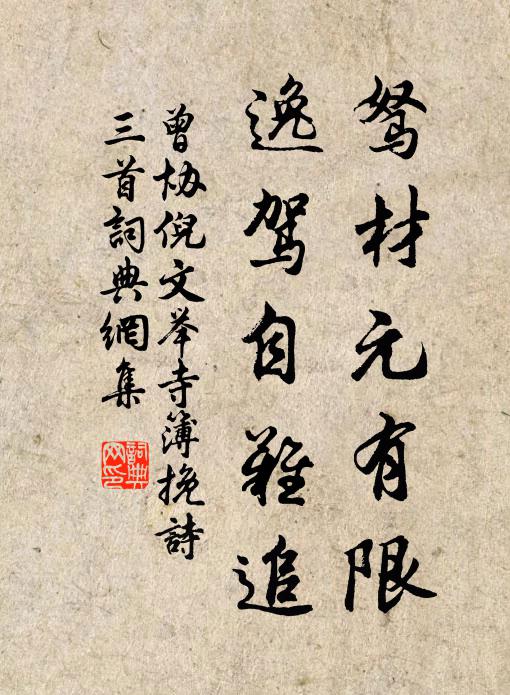 駑材元有限
逸駕自難追
曾协倪文举寺簿挽詩
三首詞典網集
詞典
网印